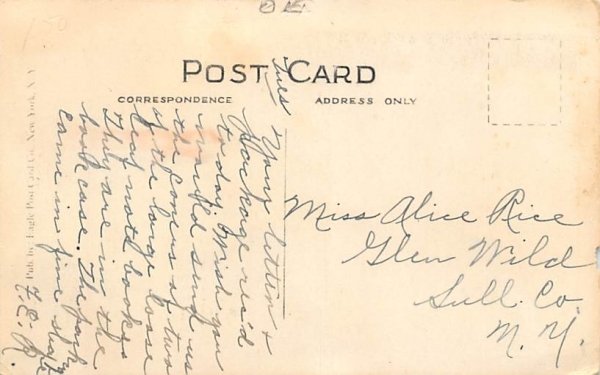 OK
1.50
POST CARD
CORRESPONDENCE
ADDRESS ONLY
Pub. by Eagle Post Card Co., New York, N.Y.
Tues
Your letter +
Package rec'd
today. Wish you
would send us
the of two
of the large loose
leaf note books
They are in the
book case. The pack
came in fine shape
Miss Alice Rice
Glen Wild
Sull. Co.
N. Y.